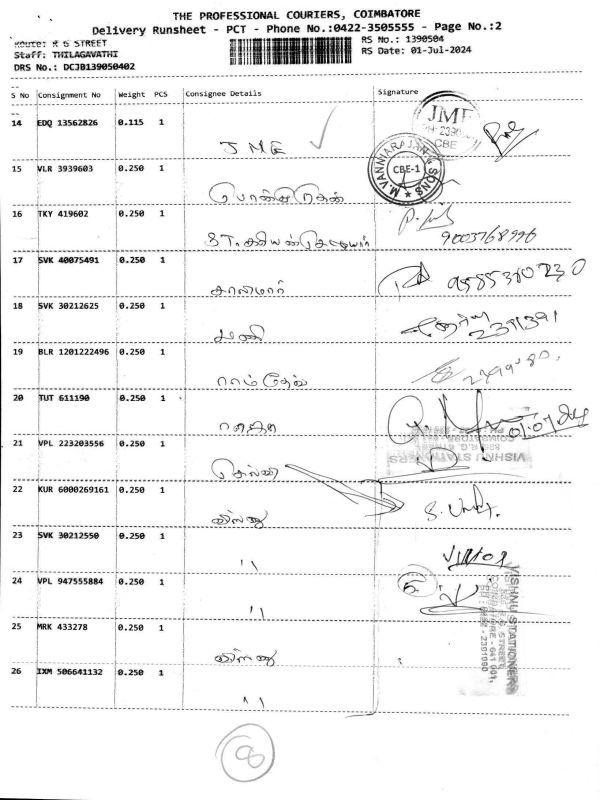 THE PROFESSIONAL COURIERS, COIMBATORE
Delivery Runsheet - PCT - Phone No.:0422-3505555 - Page No.:2
Route: R G STREET
RS No.: 1390504
Staff: THILAGAVATHI
RS Date: 01-Jul-2024
DRS No.: DCJB139050402
S No Consignment No Weight PCS Consignee Details Signature
14 EDQ 13562826 0.115 1
JME
JME
CBE
15 VLR 3939603 0.250 1
M.VANNIARAJAN & SONS
CBE-1
16 TKY 419602 0.250 1
9003768996
17 SVK 40075491 0.250 1
சாலிமார்
9585380230
18 SVK 30212625 0.250 1
மணி
2381391
19 BLR 1201222496 0.250 1
ராம்தேவ்
20 TUT 611190 0.250 1
01.07.24
21 VPL 223203556 0.250 1
செல்வி
VISHNU STATIONERS
22 KUR 6000269161 0.250 1
விஷ்ணு
23 SVK 30212550 0.250 1
"
24 VPL 947555884 0.250 1
"
VISHNU STATIONERS
COIMBATORE - 641 001.
PH : 0422 - 2391080
25 MRK 433278 0.250 1
விஷ்ணு
26 IXM 506641132 0.250 1
"
8